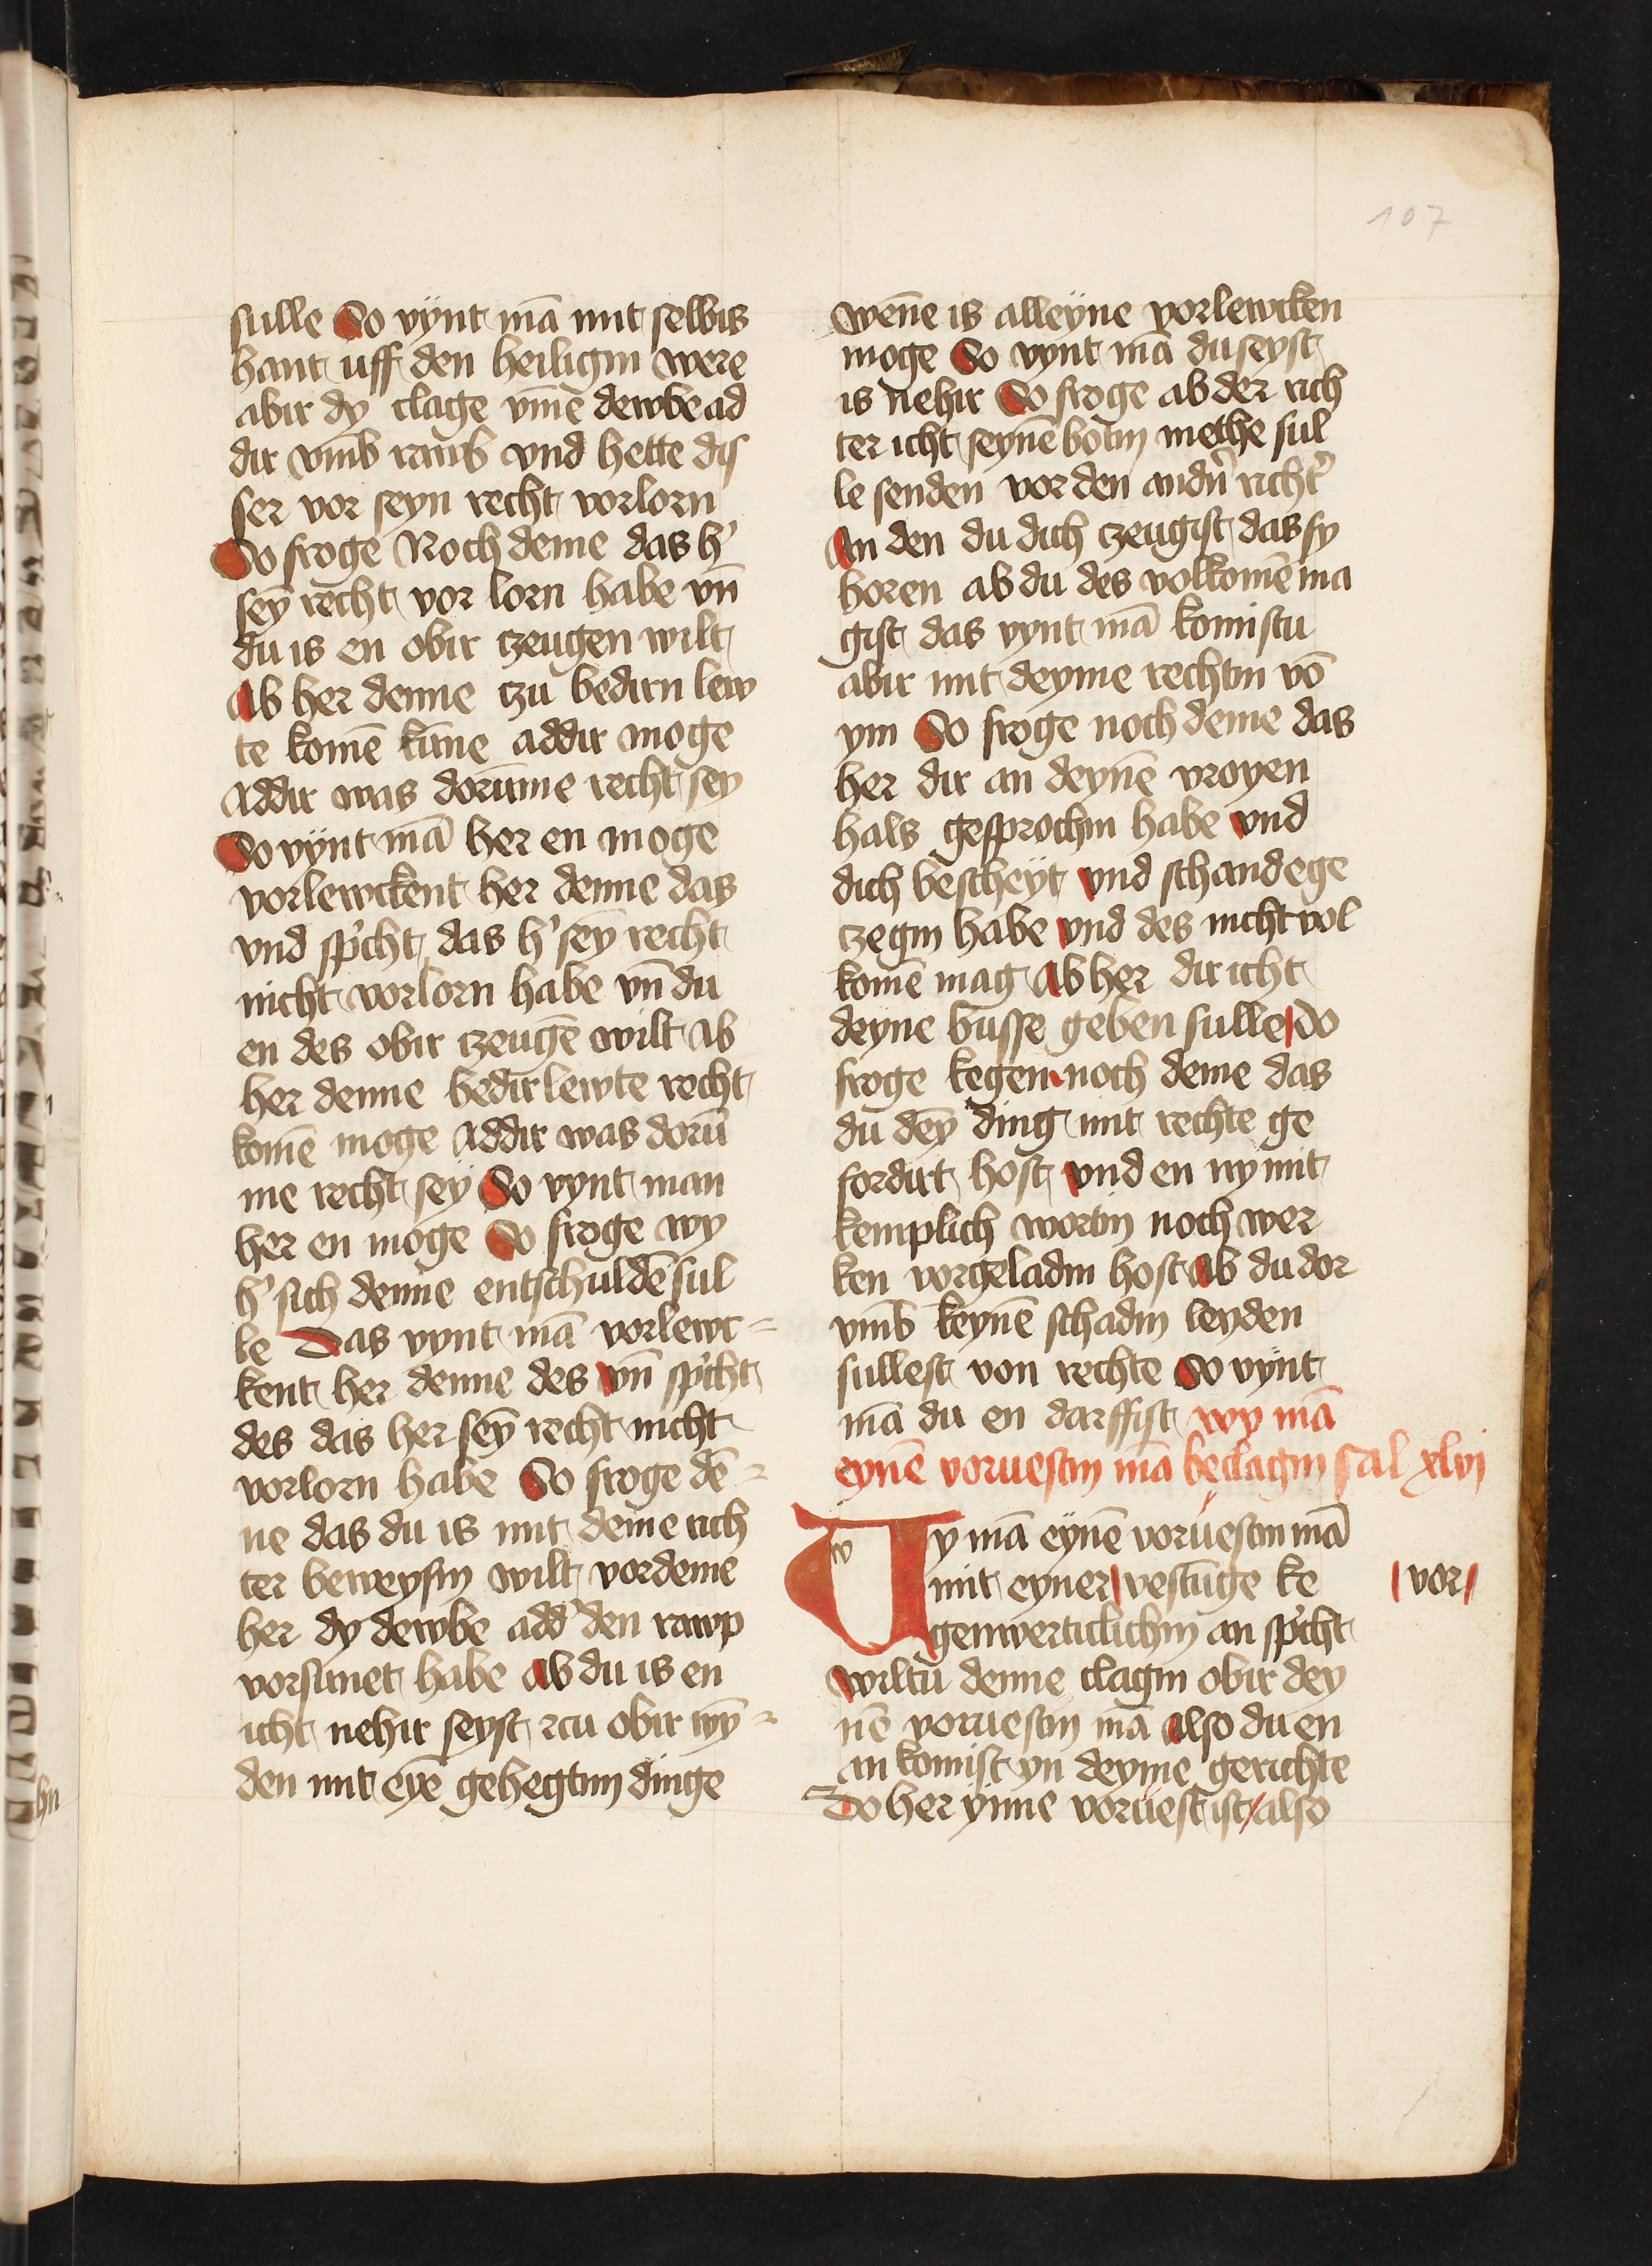 107
sulle So vÿnt mā mit selbis
hant uff den heiligin were
abir dy clage vm̄e dewbe ad
dir vm̄b raub vnd hette dis
ser vor seyn recht vorlorn
So froge Noch deme das h'
sey̅ recht vor lorn habe vn̄
du is en obir tzeugen wilt
Ab her denne tzu bedirn lew
te komē kūne addir moge
Addir was dorūme recht sey
So vÿnt mā her en moge
vorlewckent her denne das
vnd sp'cht das h' sey̅ recht
nicht vorlorn habe vn̄ du
en des obir tzeugē wilt Ab
her denne bedirlewte recht
komē moge Addir was dorū
me recht sey So vynt man
her en moge So froge wy
h' sich denne entschuldē sul
le Das vynt mā vorlewc=
kent her denne des vn̄ sp'cht
des das her sey̅ recht nicht
vorlorn habe So froge dē=
ne das du is mit deme rich
ter beweysin wilt vordeme
her dy dewbe add' den rawp
vorsunet habe ab du is en
icht nehir seyst rcu obir wy̅=
den mit eyē gehegtim dinge
wen̄e is alleyne vorlewcken
moge So vynt mā du seyst
is nehir So froge ab der rich
ter icht seynē botin methe sul
le senden vor den andn̄ richt'
An den du dich tzeugist das sy
horen ab du des volkomē ma
gist das vynt mā komistu
abir mit deyme rechtin vō
ym So froge noch deme das
her dir an deynē vroyen
hals gesprochin habe vnd
dich bescheyt vnd schandege
tzegin habe vnd des nicht vol
komē mag Ab her dir icht
deyne busse geben sulle So
froge kegen noch deme das
du dey̅ ding mit rechte ge
fordirt host vnd en ny mit
kemplich wortin noch wer
ken vorgeladin host Ab du dor
vm̄b keynē schadin leyden
sullest von rechte So vÿnt
mā du en darffist wy mā
eynē voruestin mā beclagin sal xlvj
Wy mā eynē voruestin mā
mit eyner vestūge ke
vor
genwerticlichin an sp'cht
wiltu denne clagin obir dey
nē voruestin mā also du en
an komist yn deyme gerichte
Do her ynne voruest ist also